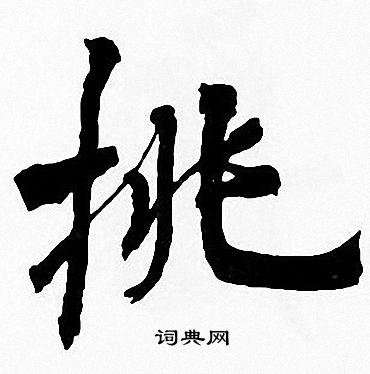 挑
词典网